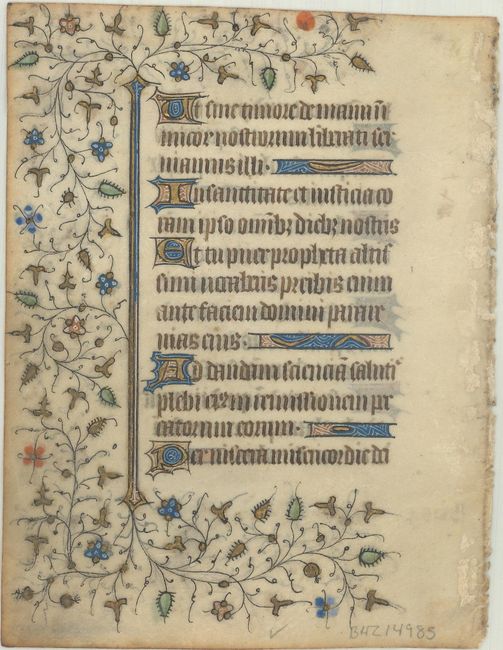 Ut sine timore de manu in
imicor nostrorum liberati ser
uiamus illi.
In sanctitate et iusticia co
ram ipso omnibz diebz nostris
Et tu puer propheta altis
simi uocaberis preibis enim
ante faciem domini parare
uias eius.
Ad dandam scienciam saluti
plebi eius in remissionem pec
catorum eorum.
Per uiscera misericordie dei
BHZ 14985